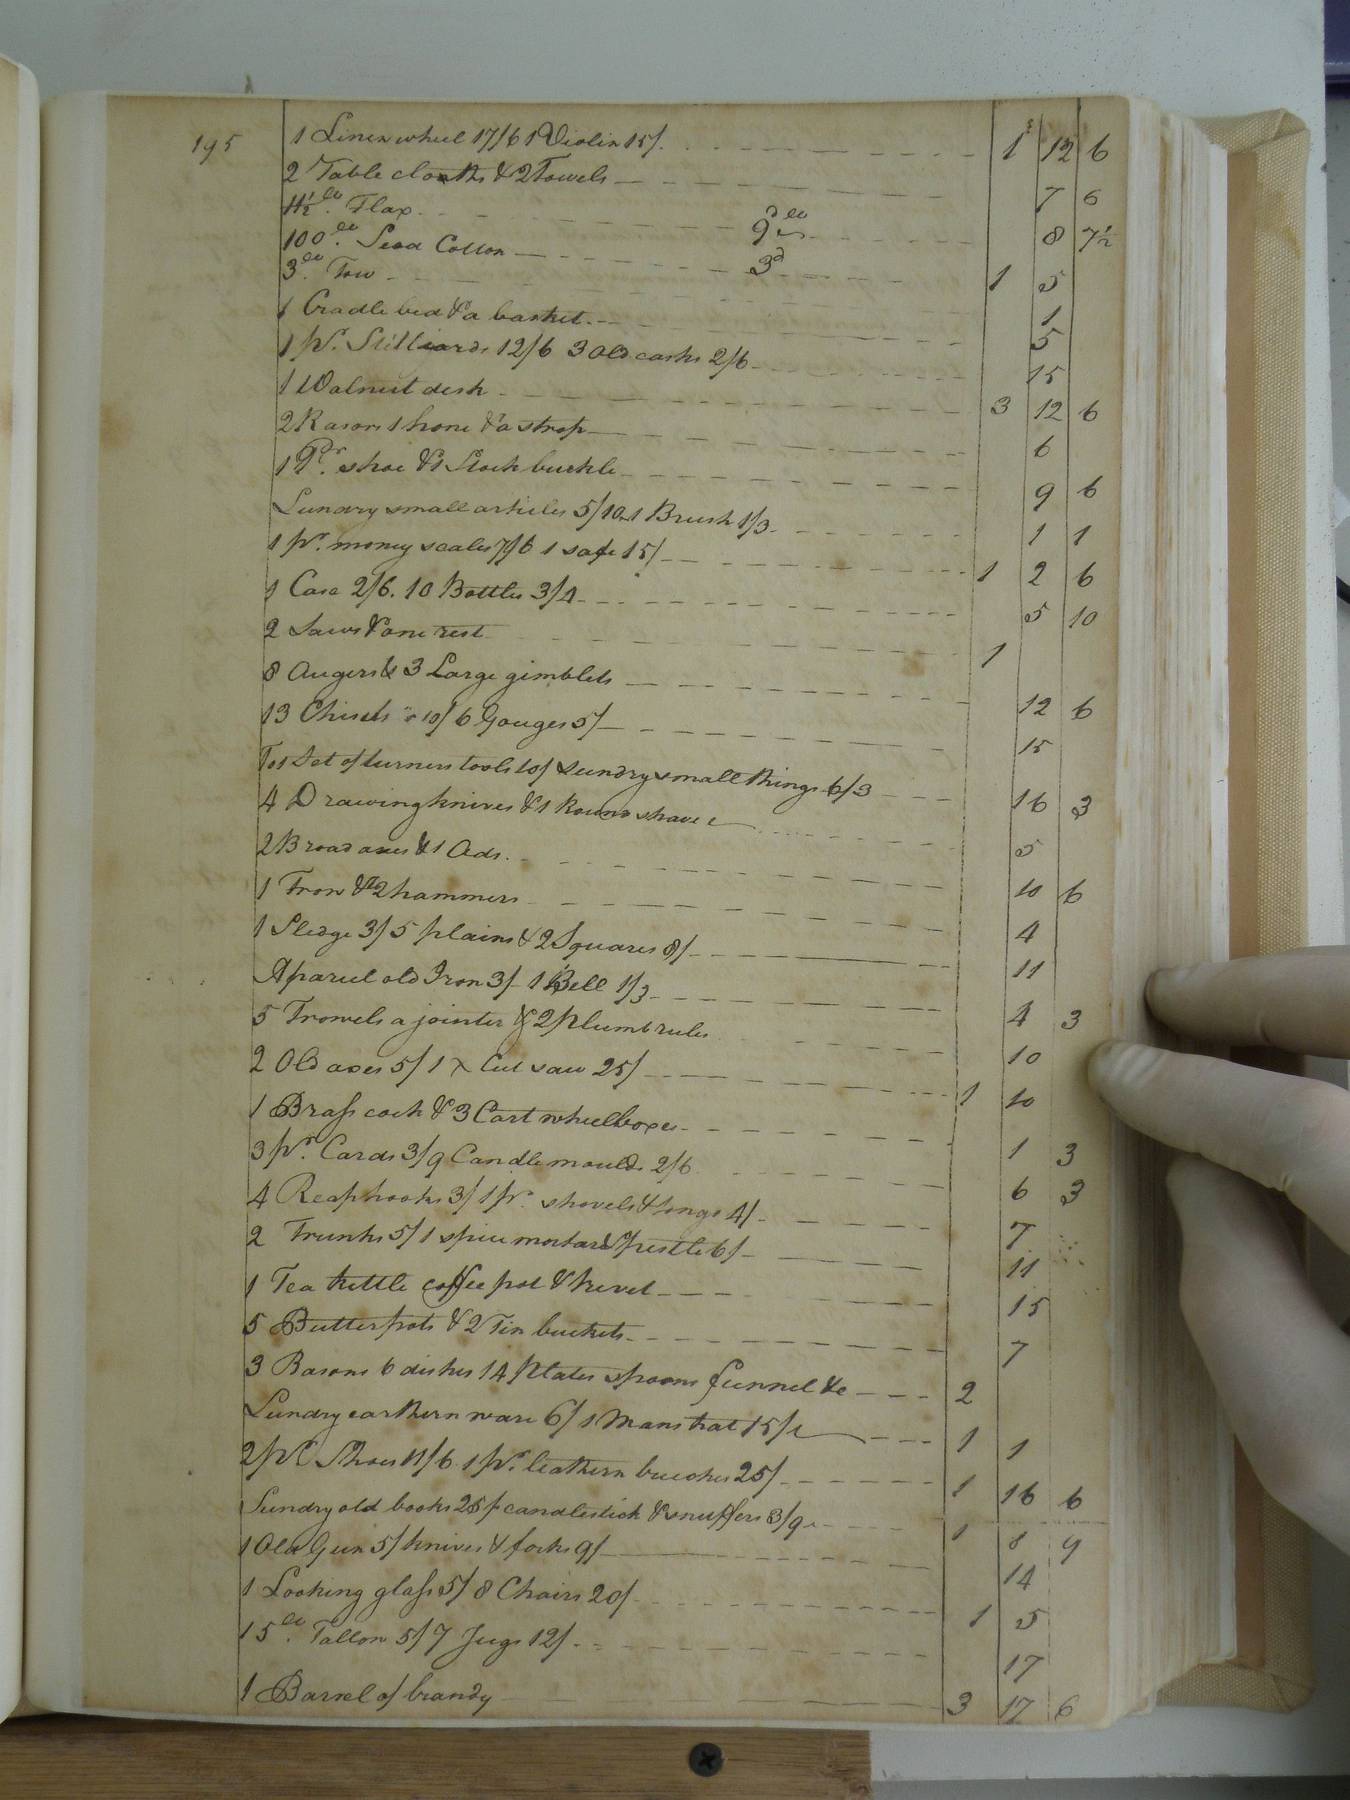 195
1 Linen wheel 17/6 1 Violin 15/. 1 12 6
2 Table cloaths & 2 Towels 7 6
11½ lb. Flax 9d lb 8 7½
100 lb. Seed Cotton 3d 1 5
3 lb. Tow 1
1 Cradle bed & a basket 5
1 pr. Stilliards 12/6 3 Old casks 2/6 15
1 Walnut desk 3 12 6
2 Rasors 1 hone & a strop 6
1 Pr. shoe & 1 Stock buckle 9 6
Sundry small articles 5/10 1 Brush 1/3 1 1
1 pr. money scales 7/6 1 safe 15/ 1 2 6
1 Case 2/6. 10 Bottles 3/4 5 10
2 Saws & one rest 1
8 Augers & 3 Large gimblets 12 6
13 Chisels 10/ 6 Gouges 5/ 15
To 1 Set of turners tools 10/ Sundry small things 6/3 16 3
4 Drawing knives & 1 Round shave 5
2 Broad axes & 1 Ads. 10 6
1 Frow & 2 hammers 4
1 Sledge 3/ 5 plains & 2 Squares 8/ 11
A parcel old Iron 3/ 1 Bell 1/3 4 3
5 Trowels a jointer & 2 plumb rules 10
2 Old axes 5/ 1 x Cut saw 25/ 1 10
1 Brass cock & 3 Cart wheel boxes 1 3
3 pr. Cards 3/9 Candle moulds 2/6 6 3
4 Reap hooks 3/ 1 pr. shovels & tongs 4/ 7
2 Trunks 5/ 1 spice mortar & Pestle 6/ 11
1 Tea kettle coffee pot & trevet 15
5 Butter pots & 2 Tin buckets 7
3 Basons 6 dishes 14 Plates spoons funnel &c 2
Sundry earthern ware 6/ 1 Mans hat 15/ 1 1
2 pr Shoes 11/6 1 pr. leathern breeches 25/ 1 16 6
Sundry old books 25/ candlestick & snuffers 3/9 1 8 9
1 Old Gun 5/ knives & forks 9/ 14
1 Looking glass 5/ 8 Chairs 20/ 1 5
15 lb. Tallow 5/ 7 Jugs 12/ 17
1 Barrel of brandy 3 17 6